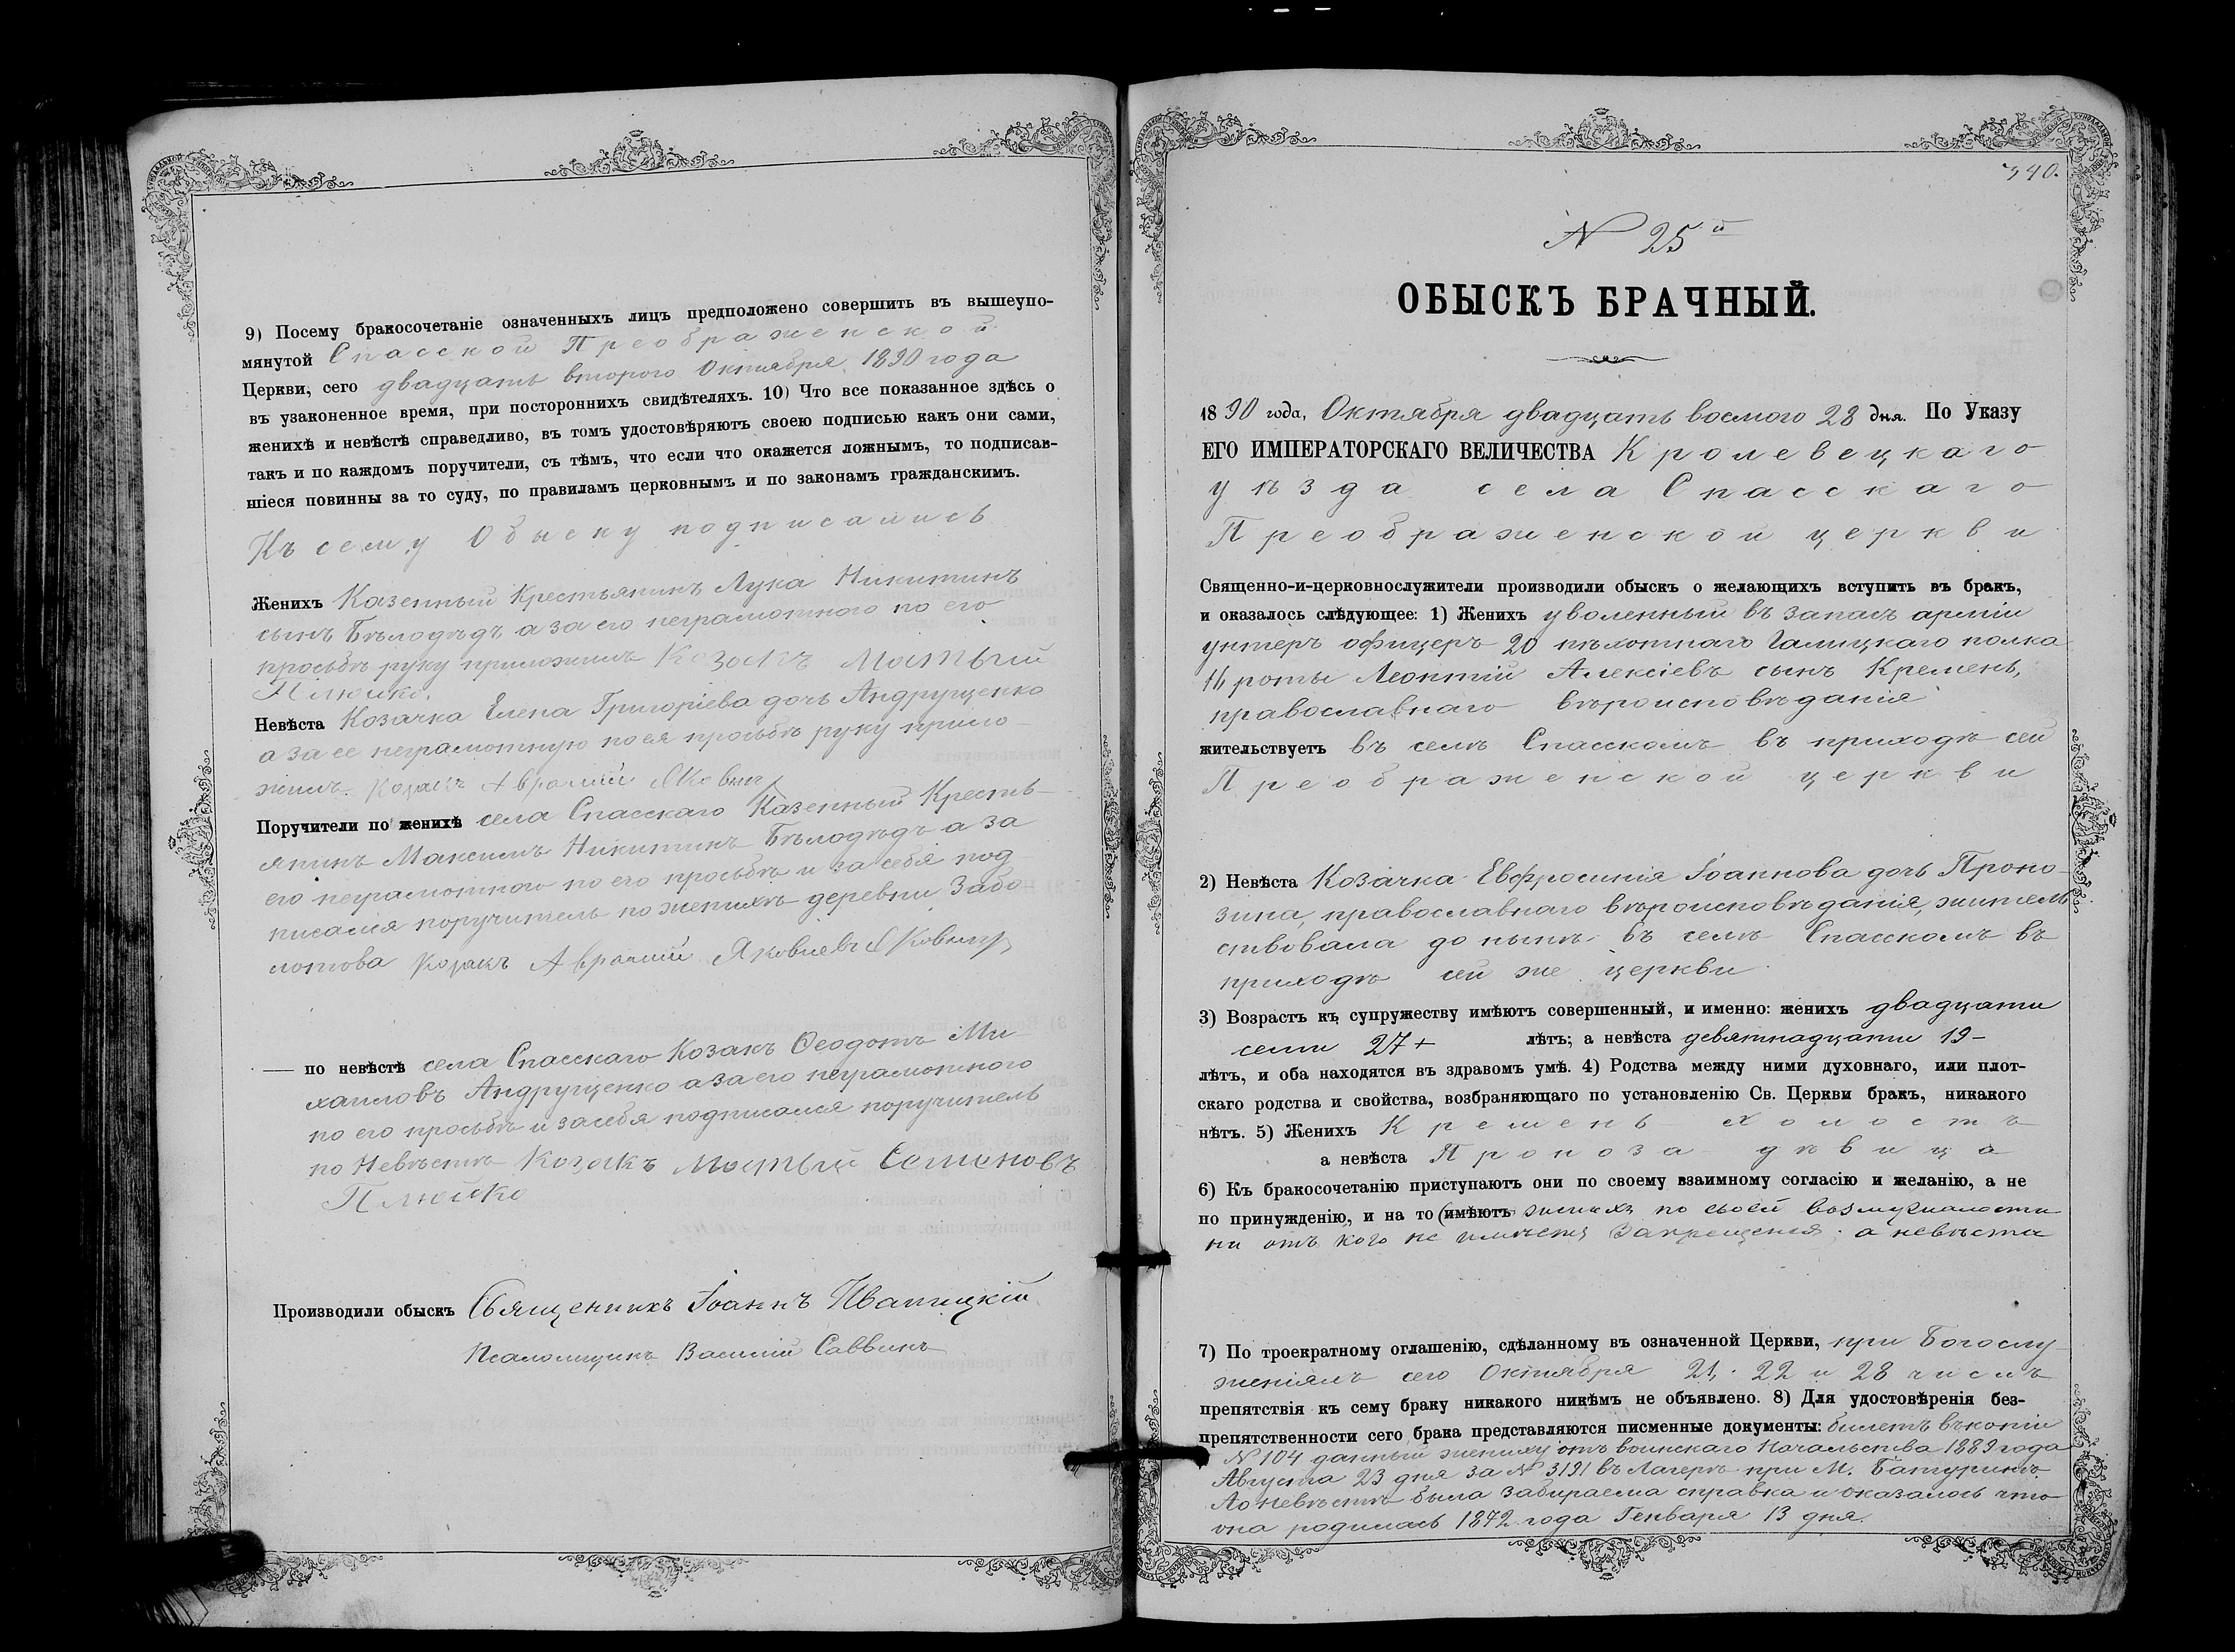 9) Посему бракосочетаніе означенныхъ лицъ предположено совершить въ вышеупо-
мянутой Спасской Преображенской
Церкви, сего двадцать второго Октября 1890 года
въ узаконенное время, при постороннихъ свидѣтеляхъ. 10) Что все показанное здѣсь о
женихѣ и невѣстѣ справедливо, въ томъ удостовѣряютъ своею подписью какъ они сами,
такъ и по каждомъ поручители, съ тѣмъ, что если что окажется ложнымъ, то подписав-
шіеся повинны за то суду, по правиламъ церковнымъ и по законамъ гражданскимъ.
Къ сему Обыску подписались
Женихъ Казенный Крестьянинъ Лука Никитинъ
сынъ Бѣлодѣдъ а за его неграмотного по его
просьбѣ руку приложилъ Козакъ Матвѣй
Плюйко.
Невѣста Козачка Елена Григоріева дочь Андрущенко
а за ее неграмотную по ея просьбѣ руку прило-
жилъ Козакъ Аврамій
Поручители по женихѣ села Спасскаго Казенный Кресть-
янинъ Максимъ Никитинъ Бѣлодѣдъ а за
его неграмотного по его просьбѣ и за себя под
писался поручитель по женихѣ деревни Забо
лотова Козакъ Аврамій Яковлевъ
по невѣстѣ села Спасскаго Козакъ Ѳеодотъ Ми
хаиловъ Андрущенко а за его неграмотного
по его просьбѣ и за себя подписался поручитель
по Невѣстѣ Козакъ Матвѣй Семеновъ
Плюйко
Производили обыскъ Священникъ Іоаннъ Иваницкій
Псаломщикъ Василій Саввинъ
340.
N 25й
ОБЫСКЪ БРАЧНЫЙ.
1890 года, Октября двадцать восмого 28 дня. По Указу
ЕГО ИМПЕРАТОРСКАГО ВЕЛИЧЕСТВА Кролевецкаго
уѣзда села Спасскаго
Преображенской церкви
Священно-и-церковнослужители производили обыскъ о желающихъ вступить въ бракъ,
и оказалось слѣдующее: 1) Женихъ уволенный въ запасъ арміи
унтеръ офицеръ 20 пѣхотнаго Галицкаго полка
16 роты Леонтій Алексіевъ сынъ Кремень,
православнаго вѣроисповѣданія
жительствуетъ въ селѣ Спасскомъ въ приходѣ сей
Преображенской церкви
2) Невѣста Козачка Евфросинія Іоаннова дочь Проно-
зина, православнаго вѣроисповѣданія, житель
ствовала до нынѣ въ селѣ Спасскомъ въ
приходѣ сей же церкви.
3) Возрастъ къ супружеству имѣютъ совершенный, и именно: женихъ двадцати
семи 27+ лѣтъ; а невѣста девятнадцати 19-
лѣтъ, и оба находятся въ здравомъ умѣ. 4) Родства между ними духовнаго, или плот-
скаго родства и свойства, возбраняющаго по установленію Св. Церкви бракъ, никакого
нѣтъ. 5) Женихъ Кремень холостъ
а невѣста Проноза дѣвица
6) Къ бракосочетанію приступаютъ они по своему взаимному согласію и желанію, а не
по принужденію, и на то (имѣютъ женихъ по своей возмужалости
ни отъ кого не имѣетъ Запрещенія; а невѣста
7) По троекратному оглашенію, сдѣланному въ означенной Церкви, при Богослу-
женіямъ сего Октября 21, 22 и 28 числъ
препятствія къ сему браку никакого никѣмъ не объявлено. 8) Для удостовѣренія без-
препятственности сего брака представляются писменные документы: билетъ въ копіи
N 104 данный жениху отъ воинскаго Начальства 1889 года
Августа 23 дня за N 3191 въ Лагерѣ при М. Батуринѣ
А о невѣстѣ была забираема справка и оказалось что
она родилась 1872 года Генваря 13 дня.